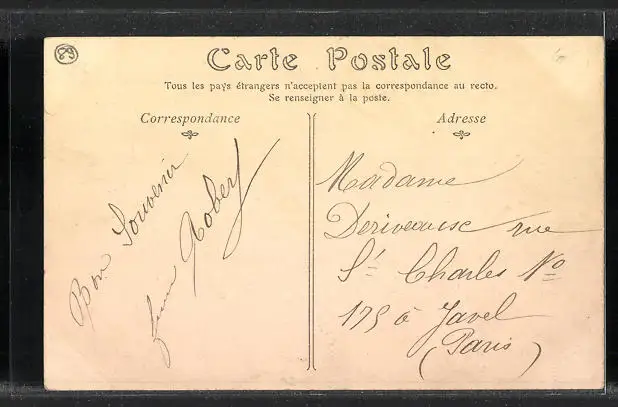 83
Carte Postale
Tous les pays étrangers n'acceptent pas la correspondance au recto.
Se renseigner à la poste.
Correspondance
Bon Souvenir
Robert
Adresse
Madame
rue
St Charles No
175 à Javel
(Paris)